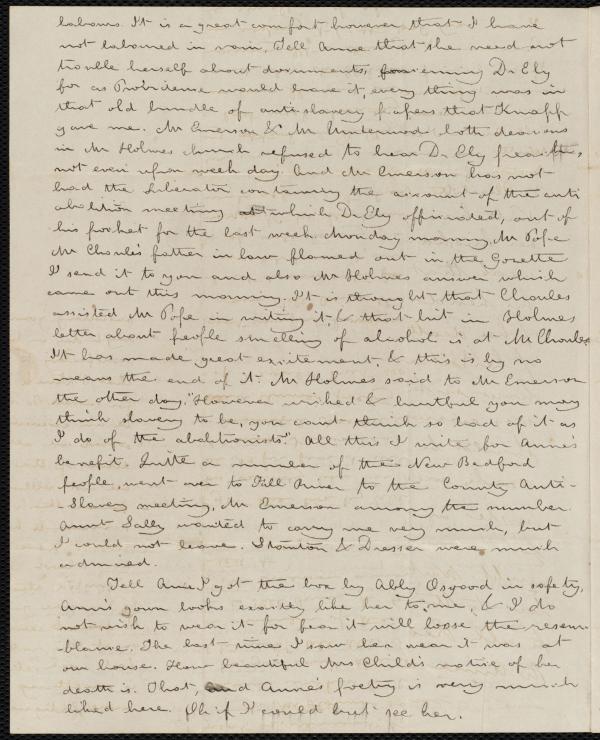 labours. It is a great comfort however that I have
not laboured in vain. Tell Anne that she need not
trouble herself about documents, concerning Dr Ely
for as Providence would have it, every thing was in
that old bundle of anti-slavery papers that Knapp
gave me. Mr Emerson & Mr Underwood both deacons
in Mr Holmes church refused to hear Dr Ely preach,
not even upon week day. And Mr Emerson has not
had the Liberator containing the account of the anti
abolition meeting at which Dr Ely officiated, out of
his pocket for the last week. Monday morning, Mr Pope
Mr Choules father in law flamed out in the Gazette
I send it to you and also Mr Holmes answer which
came out this morning. It is thought that Choules
assisted Mr Pope in writing it, & that hit in Holmes
letter about people smelling of alcohol is at Mr Choules
It has made great excitement, & this is by no
means the end of it. Mr Holmes said to Mr Emerson
the other day, "However wicked & hurtful you may
think slavery to be, you cant think so bad of it as
I do of the abolitionists." All this I write for Anne's
benefit. Quite a number of the New Bedford
people, went over to Fall River to the County Anti-
-Slavery meeting, Mr Emerson among the number.
Aunt Sally wanted to carry me very much, but
I could not leave. Stanton & Dresser were much
admired.
Tell Anne I got the box by Abby Osgood in safety,
Ann's gown looks exactly like her to me, & I do
not wish to wear it for fear it will loose the resem-
-blance. The last time I saw her wear it was at
our house. How beautiful Mrs Child's notice of her
death is. That, and Anne's poetry is very much
liked here. Oh if I could but see her.